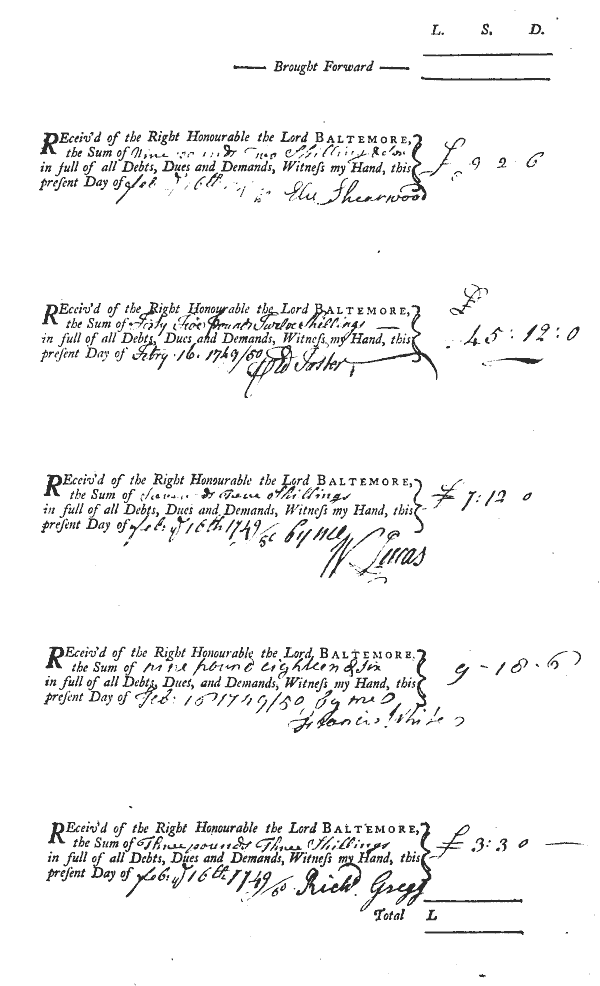 L. S. D.
Brought Forward
REceiv'd of the Right Honourable the Lord BALTEMORE,
the Sum of Nine pounds Two Shillings & £ 9 2 6
in full of all Debts, Dues and Demands, Witneſs my Hand, this
preſent Day of Feb. yᵉ 16th Sherwood
REceiv'd of the Right Honourable the Lord BALTEMORE, £
the Sum of Forty Five pounds Twelve Shillings 45:12:0
in full of all Debts, Dues and Demands, Witneſs my Hand, this
preſent Day of Febry. 16. 1749/50 Foster
REceiv'd of the Right Honourable the Lord BALTEMORE, £ 7:12 0
the Sum of Shillings
in full of all Debts, Dues and Demands, Witneſs my Hand, this
preſent Day of Feb. yᵉ 16th 1749/50 by me
W Lucas
REceiv'd of the Right Honourable the Lord BALTEMORE, 9-18-6
the Sum of nine pound eighteen & six
in full of all Debts, Dues, and Demands, Witneſs my Hand, this
preſent Day of Feb: 16 1749/50 by me
Francis White
REceiv'd of the Right Honourable the Lord BALTEMORE,
the Sum of Three pounds Three Shillings £ 3:3 0 —
in full of all Debts, Dues and Demands, Witneſs my Hand, this
preſent Day of Feb. yᵉ 16th 1749/50 Richd. Gregg
Total L